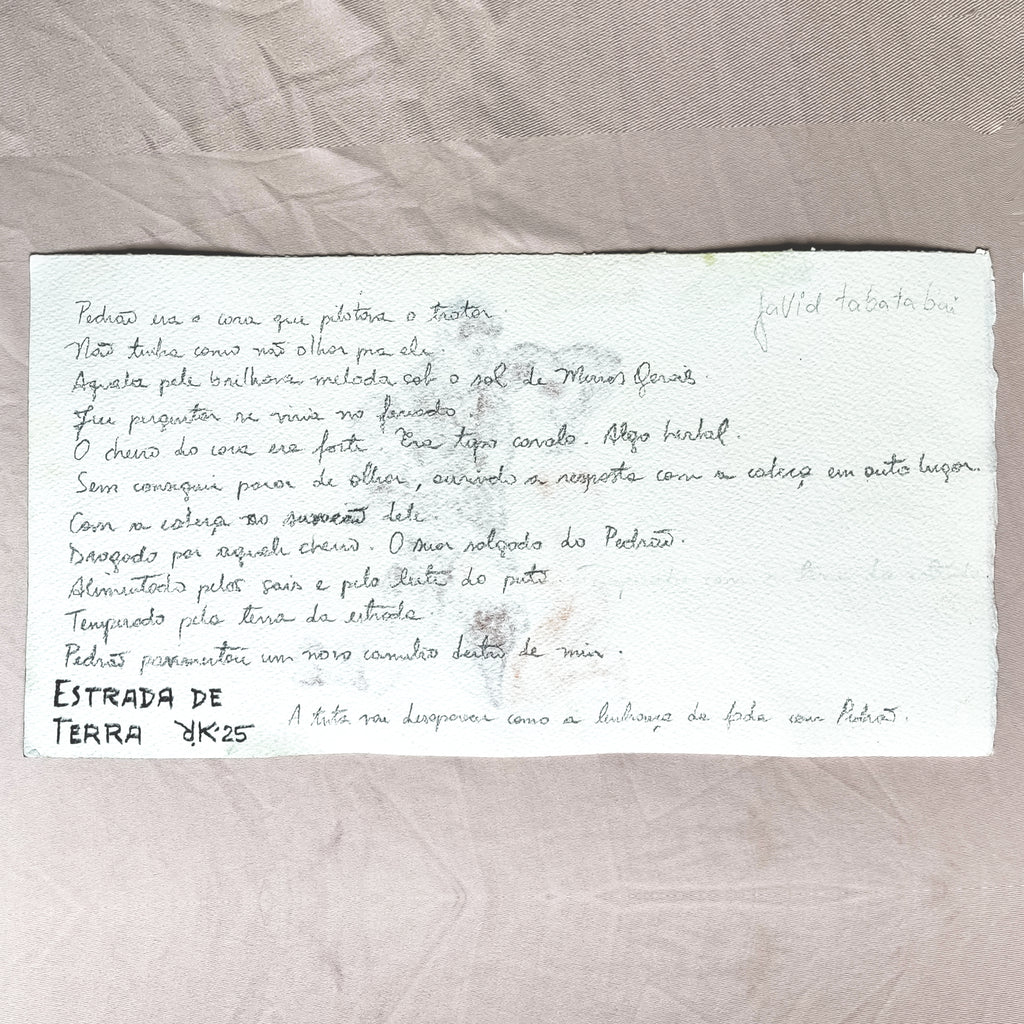 javid tabatabai
Pedrão era o cara que pilotava o trator.
Não tinha como não olhar pra ele.
Aquela pele brilhava melada sob o sol de Minas Gerais.
Fui perguntar se viria no feriado.
O cheiro do cara era forte. Era tipo cavalo. Algo herbal.
Sem conseguir parar de olhar, ouvindo a resposta com a cabeça em outo lugar.
Com a cabeça no suvacão dele.
Drogado por aquele cheiro. O suor salgado do Pedrão.
Alimentado pelos sais e pelo leite do puto.
Temperado pela terra da estrada.
Pedrão pavimentou um novo caminho dentro de mim.
A tinta vai desaparecer como a lembrança da foda com Pedrão.
ESTRADA DE
TERRA JK·25